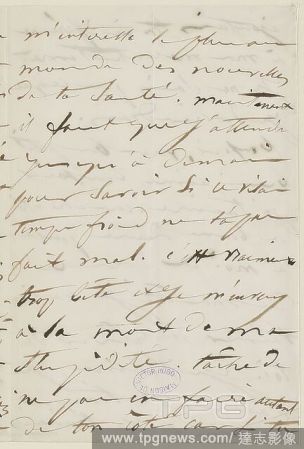 m'interesse le plus au
monde des nouvelles
de ta santé. maintenant
il faut que j'attende
jusqu'à demain
pour savoir si ce vilain
temps froid ne t'a pas
fait mal. c'est vraiment
trop bête et je m'en veux
à la mort de ma
stupidité. tâche de
ne pas en faire autant
de ton côté car
MAISON DE VICTOR HUGO
TPG
www.tpgnews.com/達志影像